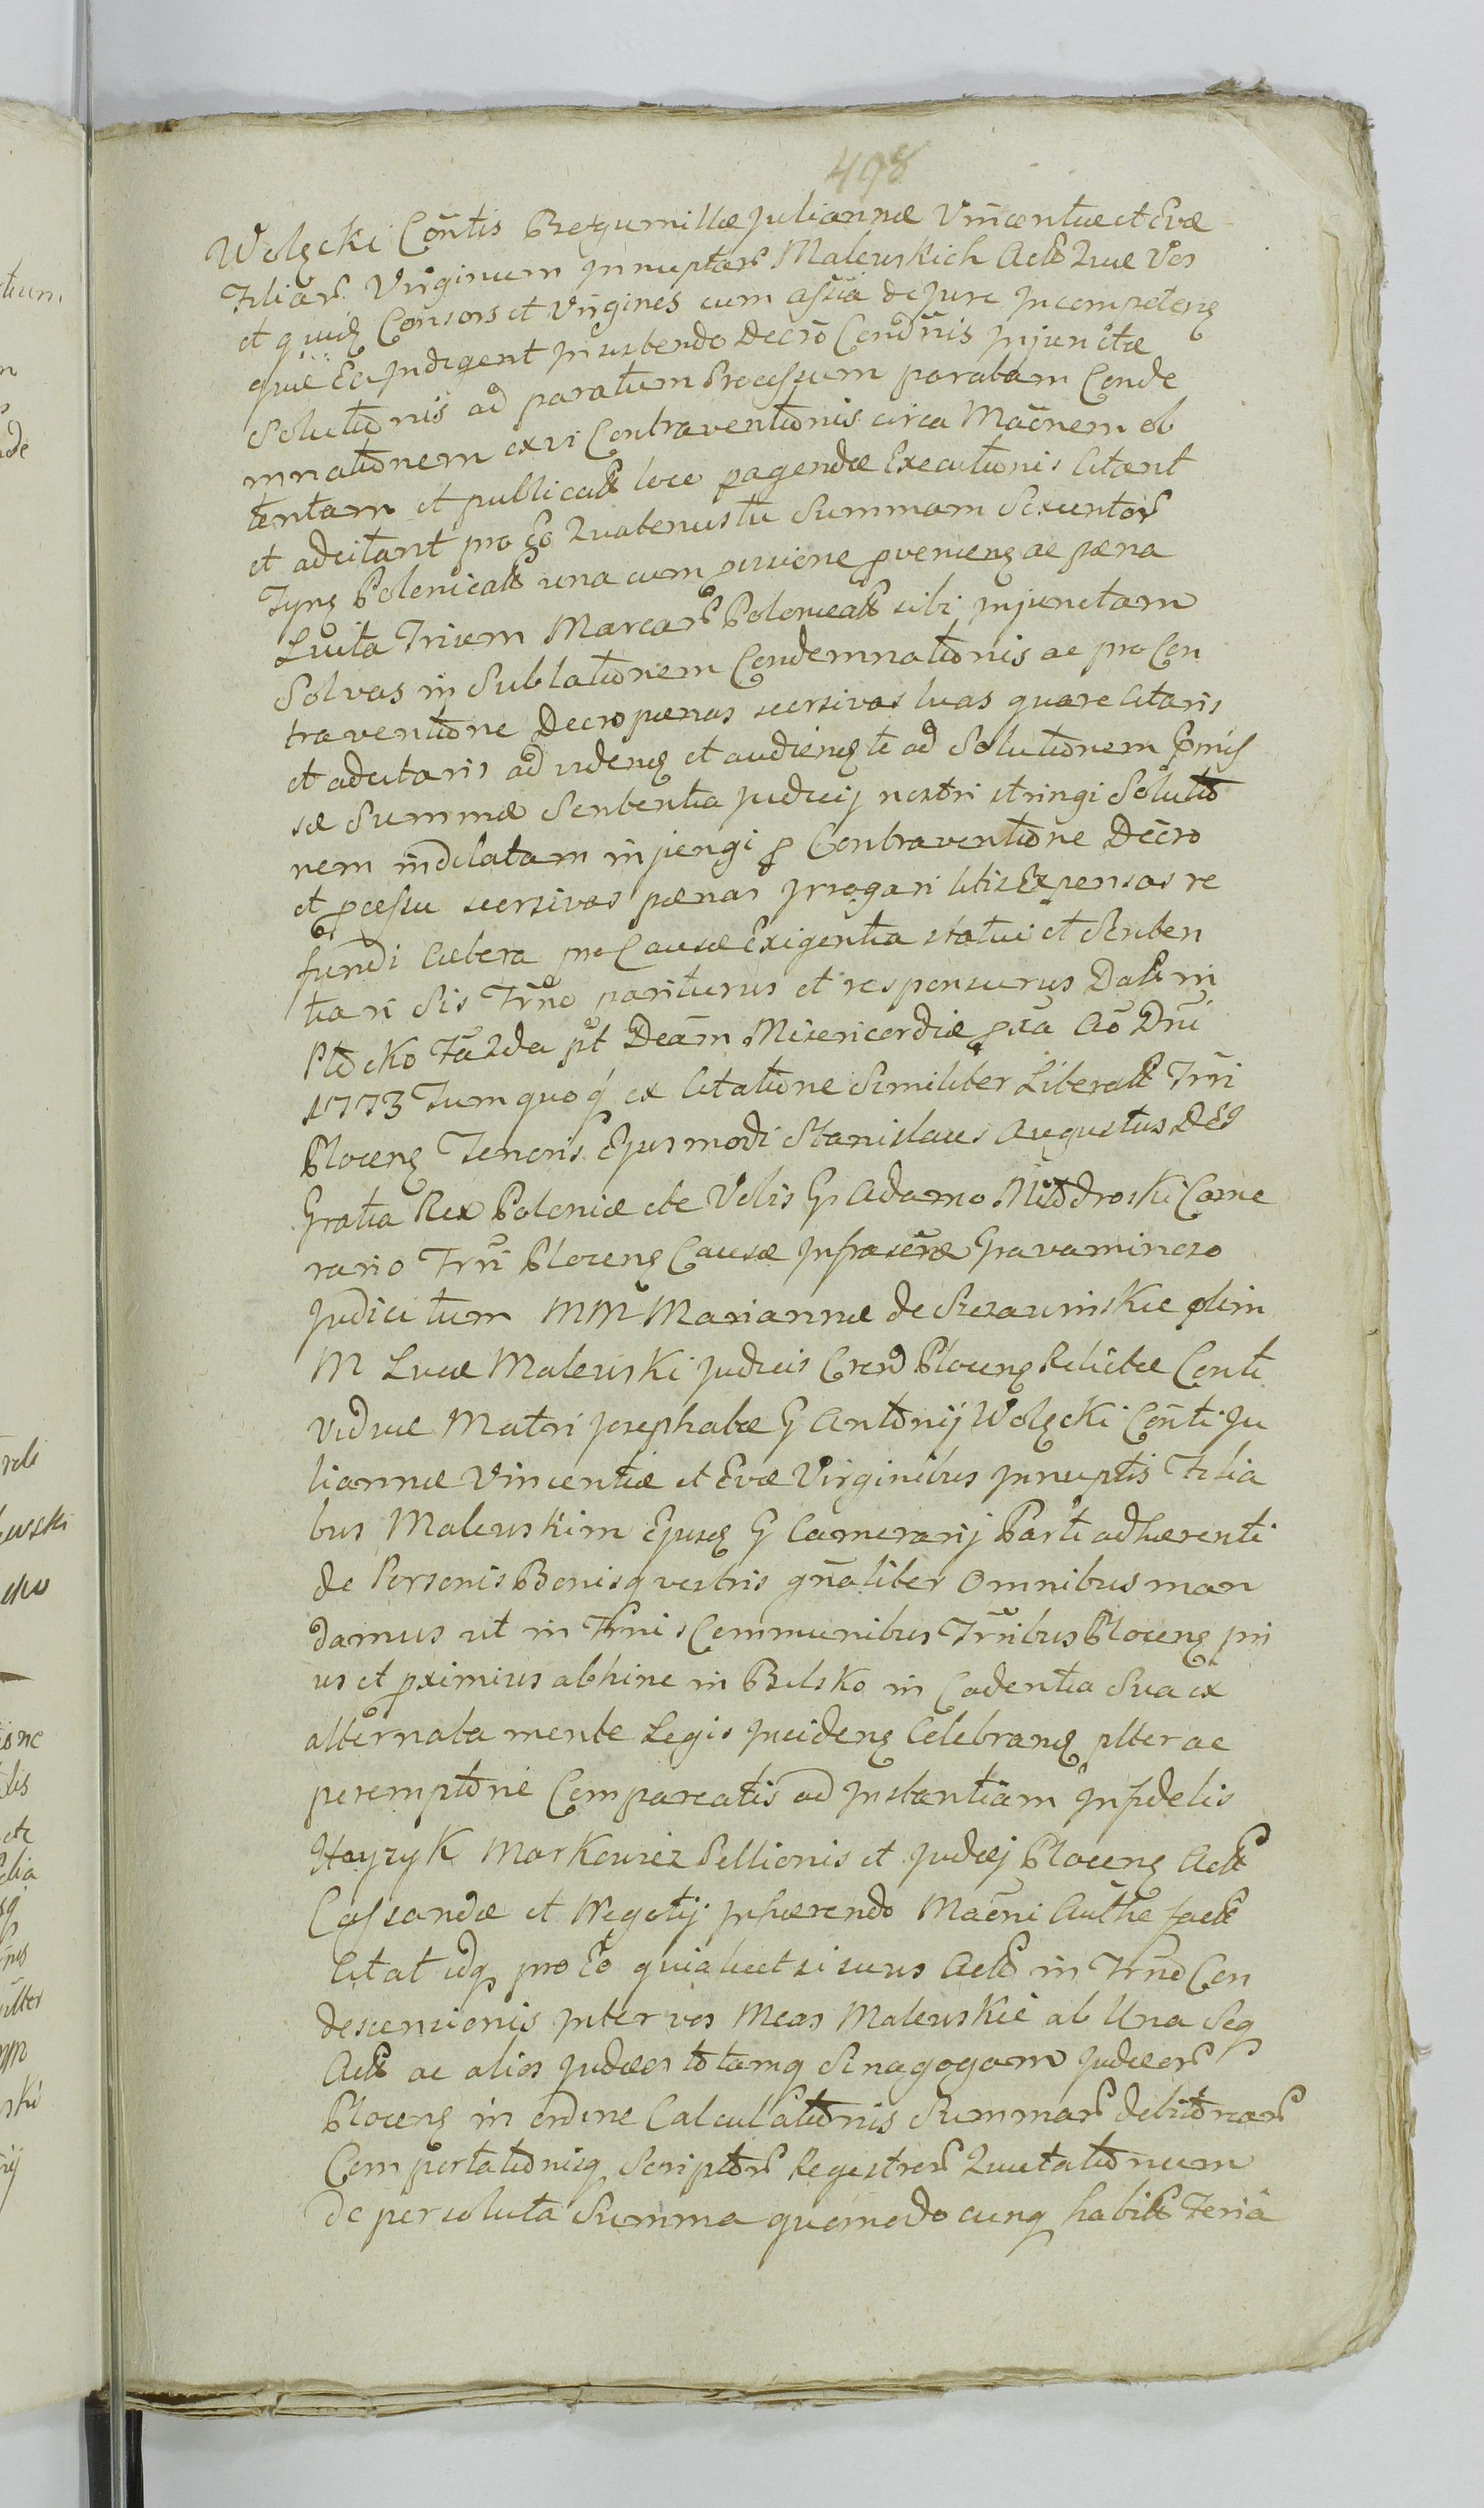 498
Wolęcki Cōntis Brzgumillæ Juliannæ Vincentiæ et Evæ
Filiar Virginum Jnnuptar Malewskich Act Quæ Vos
et quid Consors et Virgines cum assīā de jure Jncompeteng
quæ Ea Jndigent Jn sustendo Decrō Condnis Jnjunctæ
Solutionis ad paratum Processum paratam Conde
mnationem ex vi Contraventionis circa Maōnem ob
tentam et publicat loco pagendæ Executionis Citant
et adcitant pro Eo Quatenus tu Summam Sexuntor
Tynę Polonicalt una cum pvisione pvenieng ac pæna
Luita Trium Marcar Polonicalt sibi Jnjunctam
Solvas in Sublationem Condemnationis ac pro Con
traventione Decro pænas seorsivas luas quare Citaris
et adcitaris ad videnę et audienę te ad Solutionem Pmis
sæ Summæ Sententia Judicij nostri stringi Solutio
nem indilatam injungi p Contraventione Decro
et pcessu seorsivas pænas Jrrogari litis Expensas re
fundi Cætera pro Causæ Exigentia statui et Senten
tiari Sis Trno pariturus et responsurus Dat in
Płocko Fa 2da pt Dcām Misericordiæ pxa Ao Dni
1773 Tum quoq ex Citatione Similiter Liberalt Trri
Plocenę Tenoris Ejusmodi Stanislaus Augustus DEI
Gratia Rex Poloniæ etc Vobis G Adamo Modroski Came
rario Trri Plocenę Causæ Jnfrascrae Gravaminoso
Judici tum MM Mariannæ de Szczawinskie olim
M Lucæ Malewski Judicis Crend Plocenę Relictæ Conti
viduæ Matri Josephatæ G Antonij Wolęcki Cōnti Ju
liannæ Vincentiæ et Evæ Virginibus Jnnuptis Filia
bus Malewskim Ejusę G Camerarij Parti adhærenti
de Personis Bonisq vestris gnāliter Omnibus man
damus ut in Trnis Communibus Trribus Plocenę pri
us et pximius abhinc in Bielsko in Cadentia Sua ex
alternata mente Legis Jncidenę Celebranę plter ac
peremptorie Compareatis ad Jnstantiam Jnfidelis
Hayzyk Markowicz Pellionis et Judæj Plocenę Act
Cassandæ et Negotij Jnhærendo Maōni Authe fact
Citat idq pro Eo quia licet si suus Act in Trno Con
descensionis Jnter vos Meas Malewskie ab Una Seq
Act ac alios Judæos totamq Sinagogam Judæor
Plocenę in ordine Calculationis Summar debitoriar
Comportationisq Scriptor Regestror Quietationum
de persoluta Summa quomodocunq habit Feria